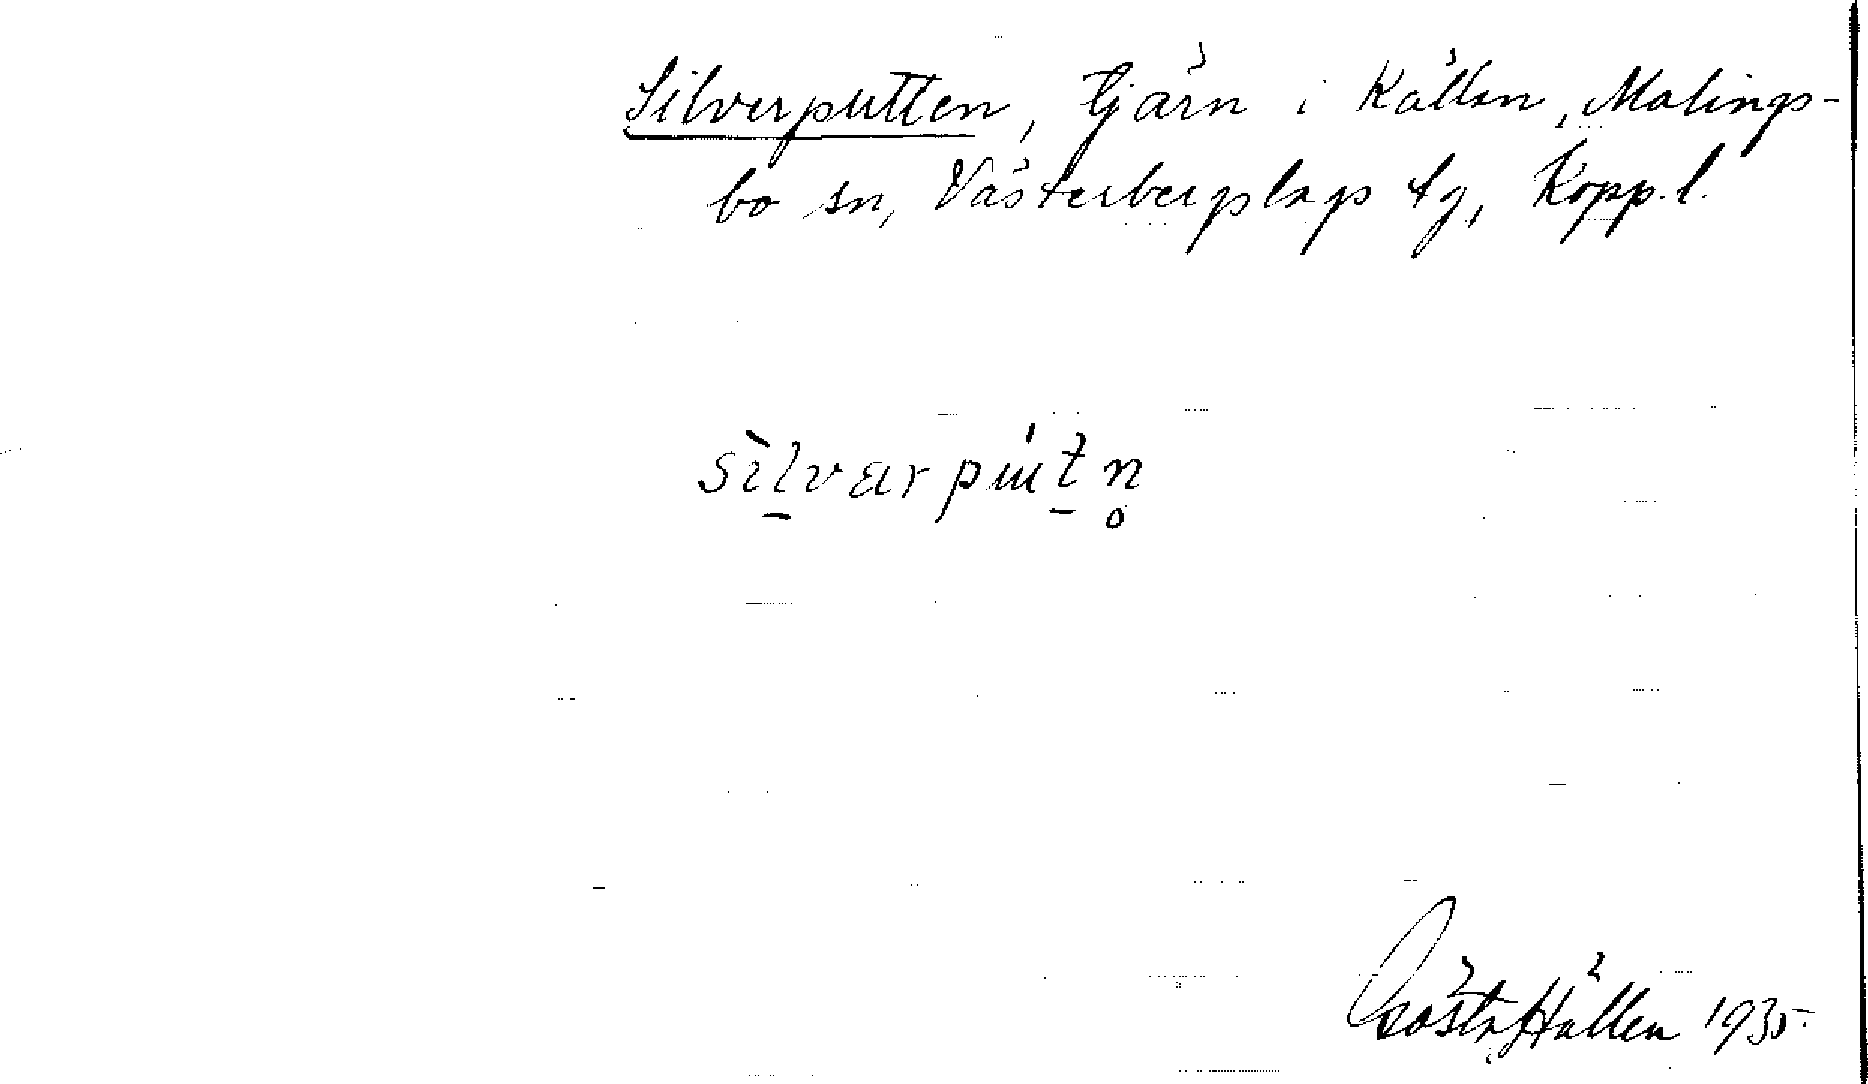 Silverputten, tjärn i Källan, Malings-
bo sn, Västerbergslags tg, Kopp.l.
sìl̠varpɯ́t̠n̥
Gösta Hällen 1935.